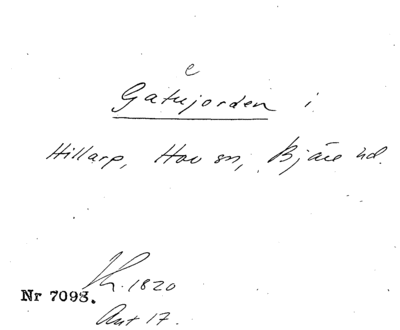 e
Gatujorden i
Hillarp, Hov sn, Bjäre hd.
Kh. 1820
Nr 7093.
Ant 17.